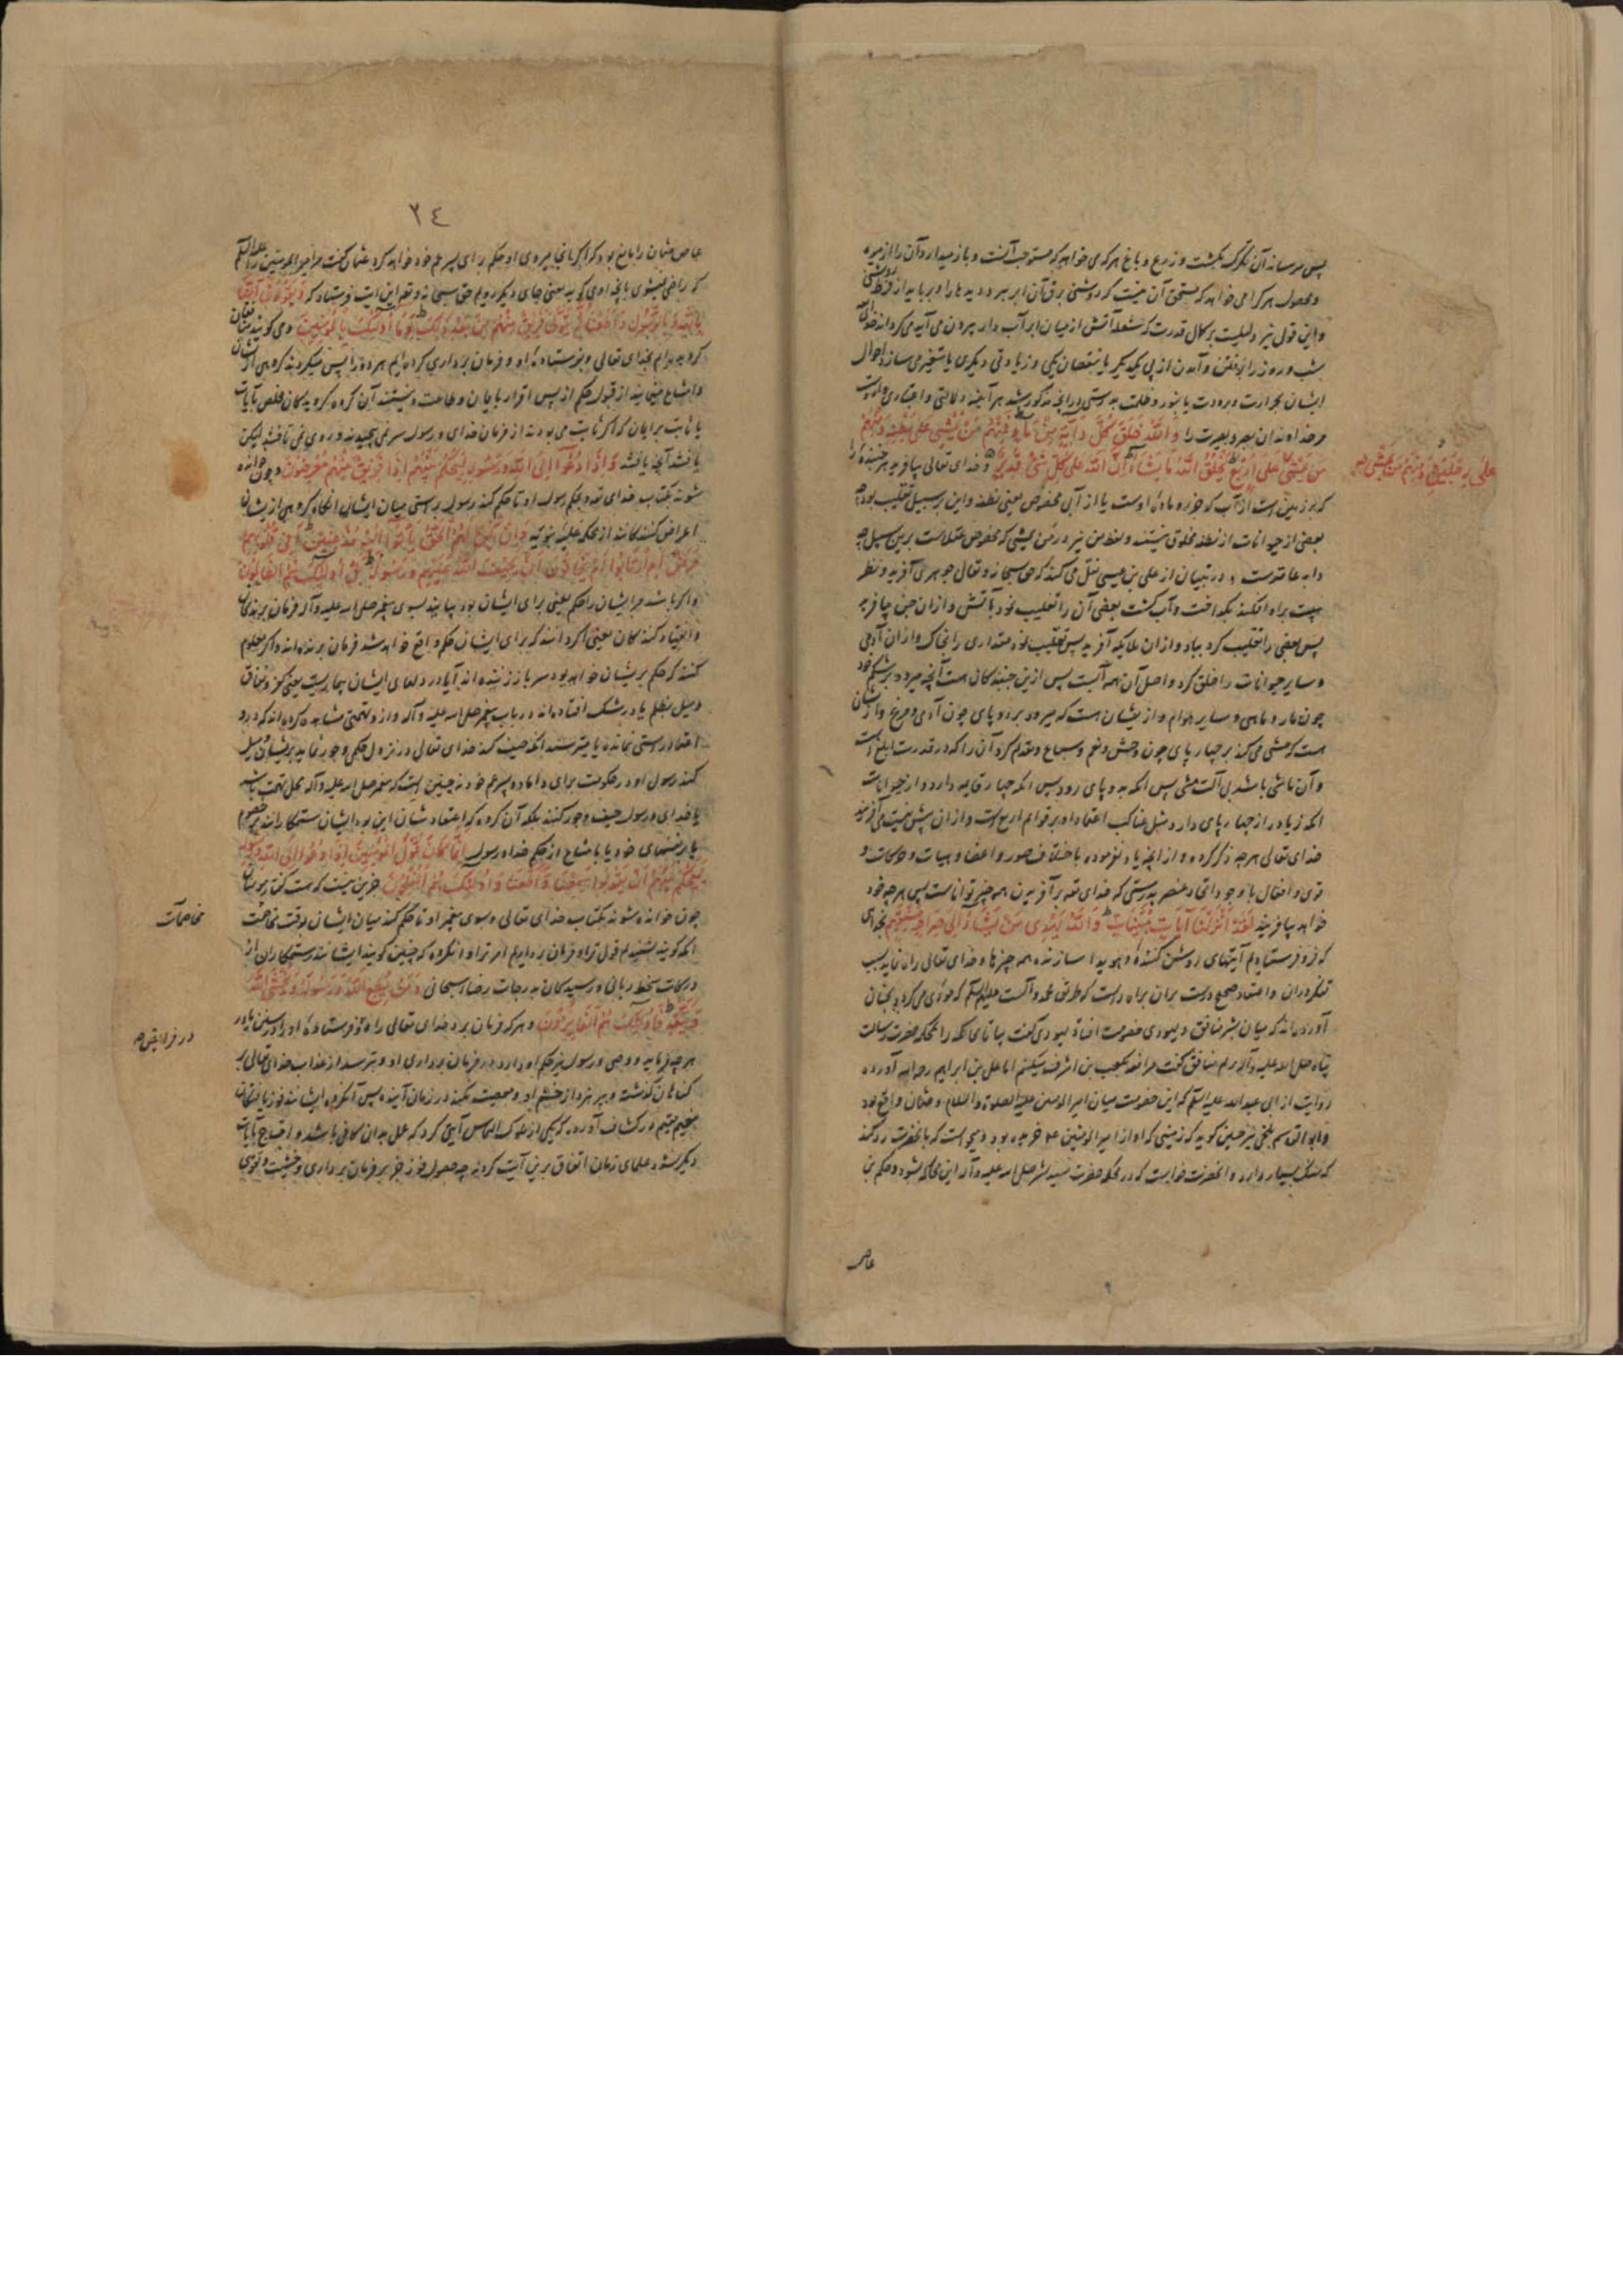 پس میرساند آن تگرگ بکشت و زرع و باغ هر که می خواهد که مستوجب آنست و باز میدارد آن را از میوه
و محصول هر کرا می خواهد که مستحق آن نیست که روشنی برق آن ابر ببرد دیدها را و برباید از فرط روشنی
و این قول نیز دلیلست بر کمال قدرت که شعله آتش از میان ابر آب دار بیرون می آید می گرداند خدای
شب و روز را برفتن و آمدن از پی یکدیگر یا بنقصان یکی و زیادتی دیگری یا بتغیر می سازد احوال
ایشان بحرارت و برودت یا بنور و ظلمت بدرستی در آنچه مذکور شد هر آینه دلالتی و اعتباری است
مر خداوندان بصر و بصیرت را وَاللّهُ خَلَقَ كُلَّ دَابَّةٍ مِنْ مَاءٍ فَمِنْهُمْ مَنْ يَمْشِي عَلَى بَطْنِهِ وَمِنْهُمْ
مَنْ يَمْشِي عَلَى أَرْبَعٍ يَخْلُقُ اللّهُ مَا يَشَاءُ إِنَّ اللّهَ عَلَى كُلِّ شَيْءٍ قَدِيرٌ و خدای تعالی بیافرید هر جنبنده را
عَلَى رِجْلَيْنِ وَمِنْهُمْ مَنْ يَمْشِي
که بر زمین است از آب که جزو ماده اوست یا از آبی مخصوص یعنی نطفه و این بر سبیل تغلیب بود چه
بعضی از حیوانات از نطفه مخلوق نیستند و لفظ من نیز در من یمشی که مخصوص عقلاست برین سبیل چه
دابه عامتر است و در تبیان از علی بن عیسی نقل می کند که حق سبحانه و تعالی جوهری آفرید و نظر
هیبت براو افکند بگداخت و آب گشت بعضی آن را تغلیب نمود بآتش و از ان جن بیافرید
پس بعضی را تغلیب کرد بباد و از ان ملایکه آفرید پس تغلیب نمود مقداری را بخاک و از ان آدمی
و سایر حیوانات را خلق کرد و اصل آن همه آبست پس ازین جنبندگان هست آنچه میرود بر شکم خود
چون مار و ماهی و سایر هوام و از یشان هست که میرود بر دو پای چون آدمی و مرغ و از یشان
هست که مشی می کند بر چهار پای چون وحش و نعم و سباع و مقدم کرد آن را که در قدرت ابلغ است
و آن ماشی باشد بی آلت مشی پس آنکه به دو پای رود پس آنکه چهار قایمه دارد و از حیوانات
آنکه زیاده از چهار پای دارد مثل عناکب اعتماد او بر قوایم اربع است و از ان بیش نیست می آفریند
خدای تعالی هر چه ذکر کرده و از آنچه یاد نفرموده باختلاف صور و اعضا و هیات و حرکات و
قوی و افعال با وجود اتحاد عنصر بدرستی که خدای تعه بر آفریدن همه چیز تواناست پس هر چه خود
خواهد بیافریند لَقَدْ أَنْزَلْنَا آيَاتٍ مُبَيِّنَاتٍ وَاللّهُ يَهْدِي مَنْ يَشَاءُ إِلَى صِرَاطٍ مُسْتَقِيمٍ بخدای
که فرو فرستادیم آیتهای روشن کننده و هویدا سازنده همه چیزها و خدای تعالی راه نماید بسبب
تفکر دران و اعتقاد صحیح درست بران براه راست که طریق محمد و آلست علیهم السلام که مؤدی می گردد بجنان
آورده اند که میان بشر منافق و یهودی خصومت افتاد یهودی گفت بیا تا محاکمه را بمحکمه حضرت رسالت
پناه صلی الله علیه و آله بریم منافق گفت مرافعه بکعب بن اشرف میکنم اما علی بن ابراهیم رحمه الله آورده
روایت از ابی عبدالله علیه السلام که این خصومت میان امیرالمومنین علیه الصلوة والسلام و عثمان واقع بود
و ابوالقاسم بلخی نیز چنین گوید که زمینی که او از امیرالمومنین ع خریده بود و میخواست که بانحضرت رد کند
که سنگ بسیار دارد و انحضرت خواست که در محکمه حضرت سید بشر صلی الله علیه و آله این محاکمه بشود و حکم بن
عاص
٢٤
عاص عثمان را مانع بود که اگر آنجا میروی او حکم برای پسر عم خود خواهد کرد عثمان گفت مر امیرالمومنین را علیه السلام
که راضی نمیشوی بآنجا آمدن یعنی جای دیگر رویم حق سبحانه و تعه این آیت فرستاد که وَيَقُولُونَ آمَنَّا
بِاللّهِ وَبِالرَّسُولِ وَأَطَعْنَا ثُمَّ يَتَوَلَّى فَرِيقٌ مِنْهُمْ مِنْ بَعْدِ ذَلِكَ وَمَا أُولَئِكَ بِالْمُؤْمِنِينَ و می گویند منافقان
گرویده ایم بخدای تعالی و بفرستاده او و فرمان برداری کرده ایم هر دو را پس میگردند گروهی از ایشان
و امتناع مینمایند از قبول حکم از پس اقرار بایمان و طاعت و نیستند آن گروه گرویدگان مخلص
یا ثابت بر ایمان که اگر ثابت می بودند از فرمان خدای و رسول سر نمی پیچیدند و روی نمی تافتند لیکن
یافتند آنچه یافتند وَإِذَا دُعُوا إِلَى اللّهِ وَرَسُولِهِ لِيَحْكُمَ بَيْنَهُمْ إِذَا فَرِيقٌ مِنْهُمْ مُعْرِضُونَ و چون خوانده
شوند بکتاب خدای تعه و بحکم رسول او تا حکم کند رسول براستی میان ایشان انگاه گروهی از یشان
اعراض کنندگانند از محکمه علیه نبویه وَإِنْ يَكُنْ لَهُمُ الْحَقُّ يَأْتُوا إِلَيْهِ مُذْعِنِينَ أَفِي قُلُوبِهِمْ
مَرَضٌ أَمِ ارْتَابُوا أَمْ يَخَافُونَ أَنْ يَحِيفَ اللّهُ عَلَيْهِمْ وَرَسُولُهُ بَلْ أُولَئِكَ هُمُ الظَّالِمُونَ
و اگر باشد مر ایشان را حکم یعنی برای ایشان بود بیایند بسوی پیغمبر صلی الله علیه و آله فرمان برندگان
و انقیاد کنندگان یعنی اگر دانند که برای ایشان حکم واقع خواهد شد فرمان برنده اند و اگر معلوم
کنند که حکم بریشان خواهد بود سر باز زننده اند آیا در دلهای ایشان بیماریست یعنی کفر و نفاق
و میل بظلم یا در شک افتاده اند در باب پیغمبر صلی الله علیه و آله و از و تهمتی مشاهده کرده اند که در و
اعتماد راستی نمانده یا میترسند آنکه حیف کند خدای تعالی در نزول حکم و جور نماید بریشان و میل
کند رسول او در حکومت برای داماد و پسر عم خود نه چنین است که پیغمبر صلی الله علیه و آله محل تهمت باشد
یا خدای و رسول حیف و جور کنند بلکه آن گروه که اعتقادشان این بود ایشان ستمکارانند بر خصوم
یا بر نفسهای خود یا بامتناع از حکم خدا و رسول إِنَّمَا كَانَ قَوْلَ الْمُؤْمِنِينَ إِذَا دُعُوا إِلَى اللّهِ وَرَسُولِهِ
لِيَحْكُمَ بَيْنَهُمْ أَنْ يَقُولُوا سَمِعْنَا وَأَطَعْنَا وَأُولَئِكَ هُمُ الْمُفْلِحُونَ جزین نیست که هست گفتار مومنان
چون خوانده شوند بکتاب خدای تعالی و سوی پیغمبر او تا حکم کند میان ایشان بوقت مخاصمت
مخاصمات
آنکه گویند شنیدیم قول ترا و فرمان برداریم امر ترا و آنگروه که چنین گویند ایشانند رستگاران از
درکات سخط ربانی و رسیدگان به درجات رضاء سبحانی وَمَنْ يُطِعِ اللّهَ وَرَسُولَهُ وَيَخْشَ اللّهَ
وَيَتَّقْهِ فَأُولَئِكَ هُمُ الْفَائِزُونَ و هر که فرمان برد خدای تعالی را و فرستاده او را در سنن یا در
در فرایض
هر چه فرماید و وحی و رسول نیز حکم او دارد در فرمان برداری او و بترسد از عذاب خدای تعالی بر
گناهان گذشته و بپرهیزد از خشم او و معصیت نکند در زمان آینده پس آنگروه ایشانند فوز یافتگان
بنعیم مقیم در کشاف آورده که یکی از ملوک التماس آیتی کرد که عمل بدان کافی باشد و احتیاج بآیات
دیگر نشود علمای زمان اتفاق برین آیت کردند چه حصول فوز جز بر فرمان برداری و خشیت و تقوی